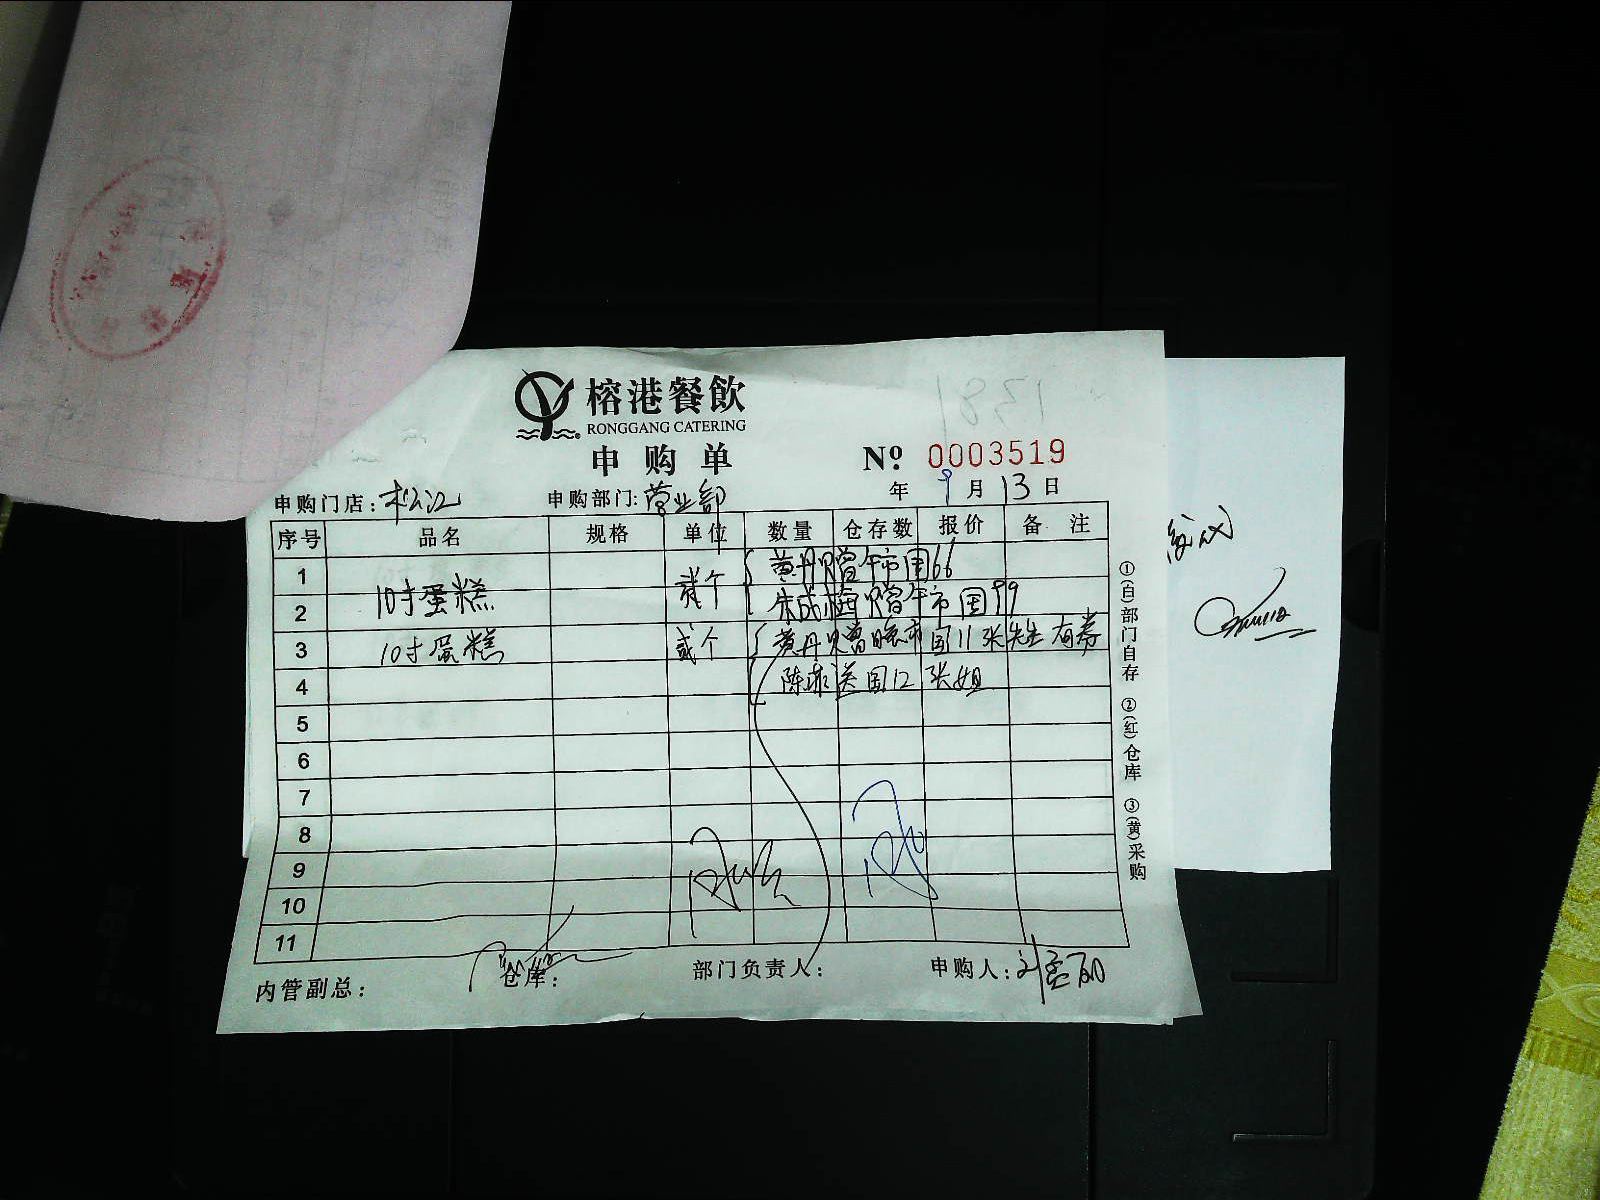 榕港餐飲
RONGGANG CATERING
申购单
Nº 0003519
申购门店：松江 申购部门：营业部 年 9月13日
序号 品名 规格 单位 数量 仓存数 报价 备 注
1 黄丹 赠午市国66
2 10寸蛋糕 贰个 朱成梅 赠午市国99
3 10寸蛋糕 贰个 黄丹 赠晚市国11张先生 有券
4 陈 送国12 张姐
5
6
7
8
9
10
11
内管副总： 仓库： 部门负责人： 申购人：
①(白)部门自存 ②(红)仓库 ③(黄)采购